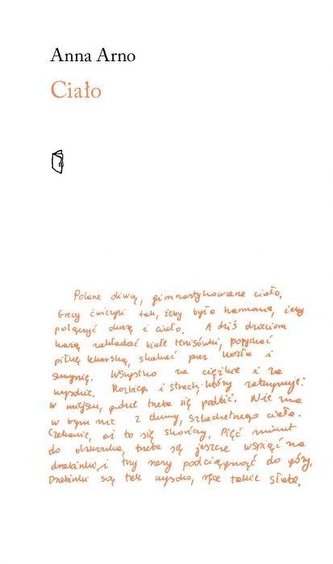 Anna Arno
Ciało
Pełne dumy, gimnastykowane ciało.
Grecy ćwiczyli tak, żeby było harmonią, żeby
połączyć duszę i ciało. A dziś dzieciom
każą zakładać białe tenisówki, popychać
piłkę lekarską, skakać przez kozła i
skrzynię. Wszystko za ciężkie i za
wysokie. Rozbieg i strach, który zatrzymuje
w miejscu, gdzie trzeba się odbić. Nie ma
w tym nic z dumy, szlachetnego ciała.
Czekanie, aż to się skończy. Pięć minut
do dzwonka, trzeba się jeszcze wspiąć na
drabinki, i trzy razy podciągnąć do góry.
Drabinki są tak wysoko, ręce takie słabe.